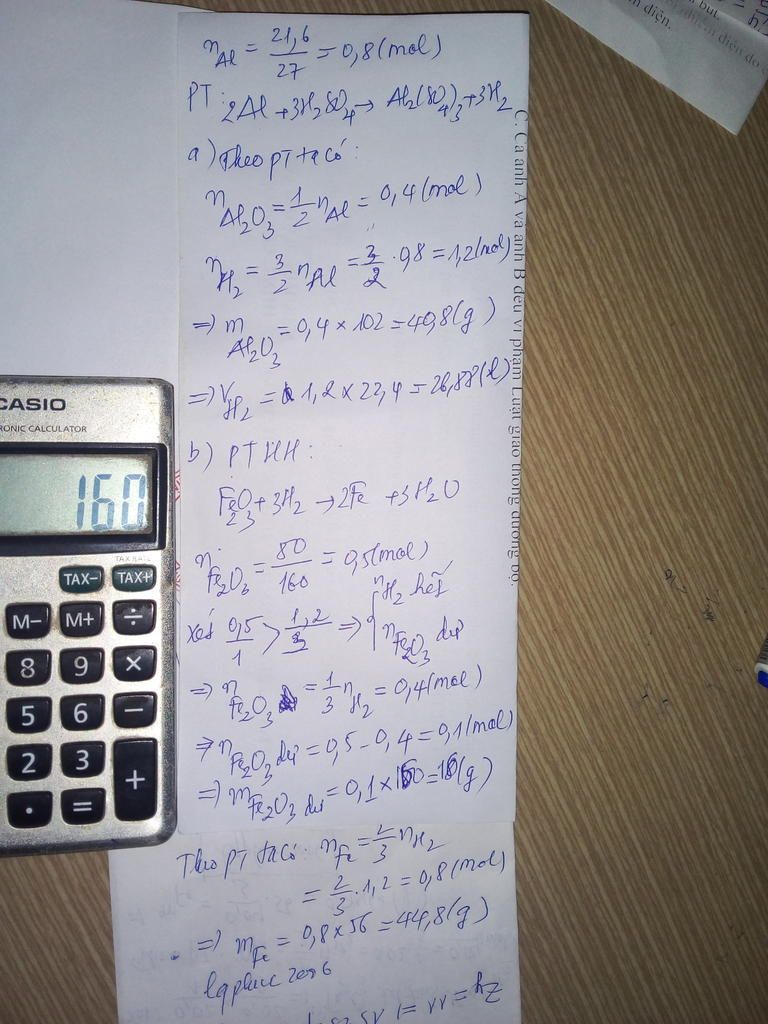 n_Al = 21,6/27 = 0,8 (mol)
PT: 2Al + 3H₂SO₄ → Al₂(SO₄)₃ + 3H₂
a) Theo PT ta có:
n_Al₂O₃ = 1/2 n_Al = 0,4 (mol)
n_H₂ = 3/2 n_Al = 3/2 . 0,8 = 1,2 (mol)
=> m_Al₂O₃ = 0,4 × 102 = 40,8 (g)
=> V_H₂ = 1,2 × 22,4 = 26,88 (l)
b) PTHH:
Fe₂O₃ + 3H₂ → 2Fe + 3H₂O
n_Fe₂O₃ = 80/160 = 0,5 (mol)
xét 0,5/1 > 1,2/3 => { n_H₂ hết
n_Fe₂O₃ dư
=> n_Fe₂O₃ = 1/3 n_H₂ = 0,4 (mol)
=> n_Fe₂O₃ dư = 0,5 - 0,4 = 0,1 (mol)
=> m_Fe₂O₃ dư = 0,1 × 160 = 16 (g)
Theo PT ta có: n_Fe = 2/3 n_H₂
= 2/3 . 1,2 = 0,8 (mol)
=> m_Fe = 0,8 × 56 = 44,8 (g)
lqphuc2006
C. Cả anh A và anh B đều vi phạm Luật giao thông đường bộ.
CASIO
ELECTRONIC CALCULATOR
160
TAX RATE
TAX- TAX+
M- M+ ÷
8 9 ×
5 6 -
2 3 +
· =